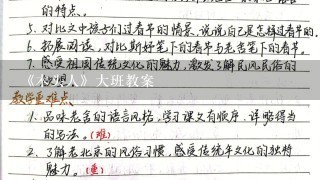 的特点。
5. 对比文中孩子们过春节的情景,说说自己是怎样过春节的.
6. 拓展阅读,对比斯妤笔下的春节与老舍笔下的春节。
7. 感受祖国传统文化的魅力,激发了解民风民俗的
《 人》大班教案
教学重难点
1. 品味老舍的语言风格,学习课文有顺序,详略得当
的写法。(难)
2. 了解老北京的风俗习惯,感受传统年文化的独特
魅力。(重)